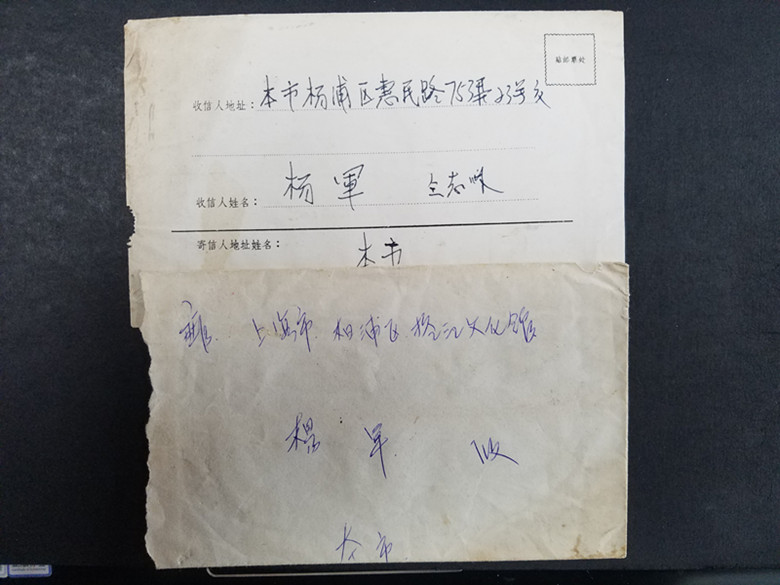 贴邮票处
收信人地址：本市杨浦区惠民路75弄23号交
收信人姓名：杨軍 仝志
寄信人地址姓名：本市
上海市 杨浦区 松江文化馆
楊軍 收
本市